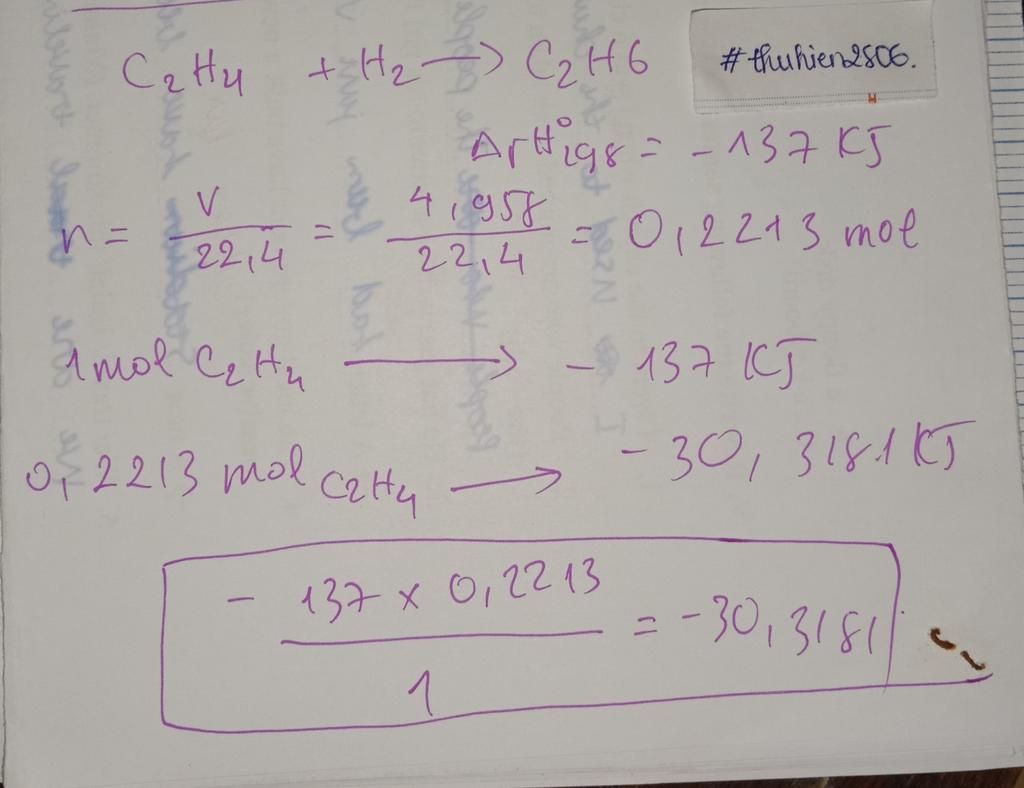 C2H4 + H2 → C2H6
#thuhien2806.
ΔrH°298 = -137 KJ
n = V/22,4 = 4,958/22,4 = 0,2213 mol
1mol C2H4 → - 137 KJ
0,2213 mol C2H4 → -30,3181 KJ
- 137 x 0,2213 / 1 = -30,3181